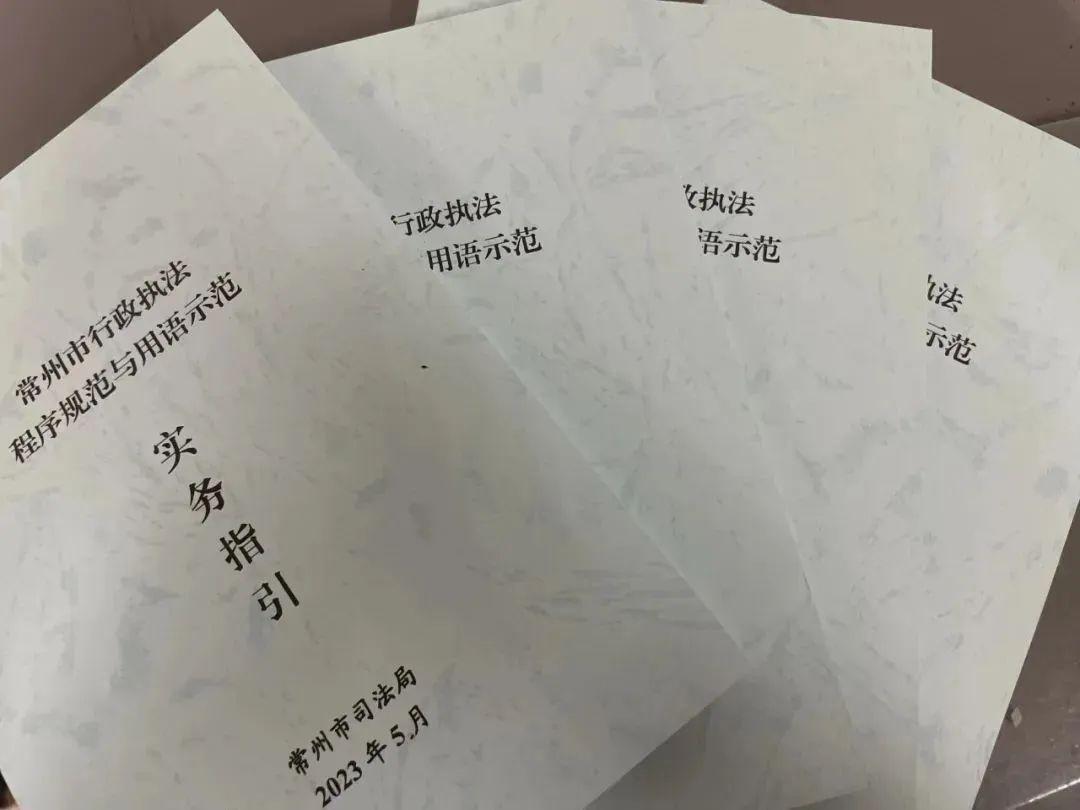 常州市行政执法
程序规范与用语示范
实务指引
常州市司法局
2023年5月
行政执法
用语示范
政执法
语示范
执法
示范